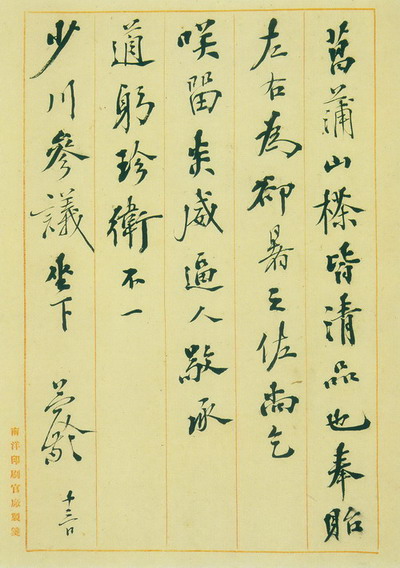 菖蒲山皆清品也奉貽
左右為卻暑之佐尚乞
咲留炎威逼人敬承
適躬珍衛不一
少川參議坐下 十三日
南洋印刷官廠製箋